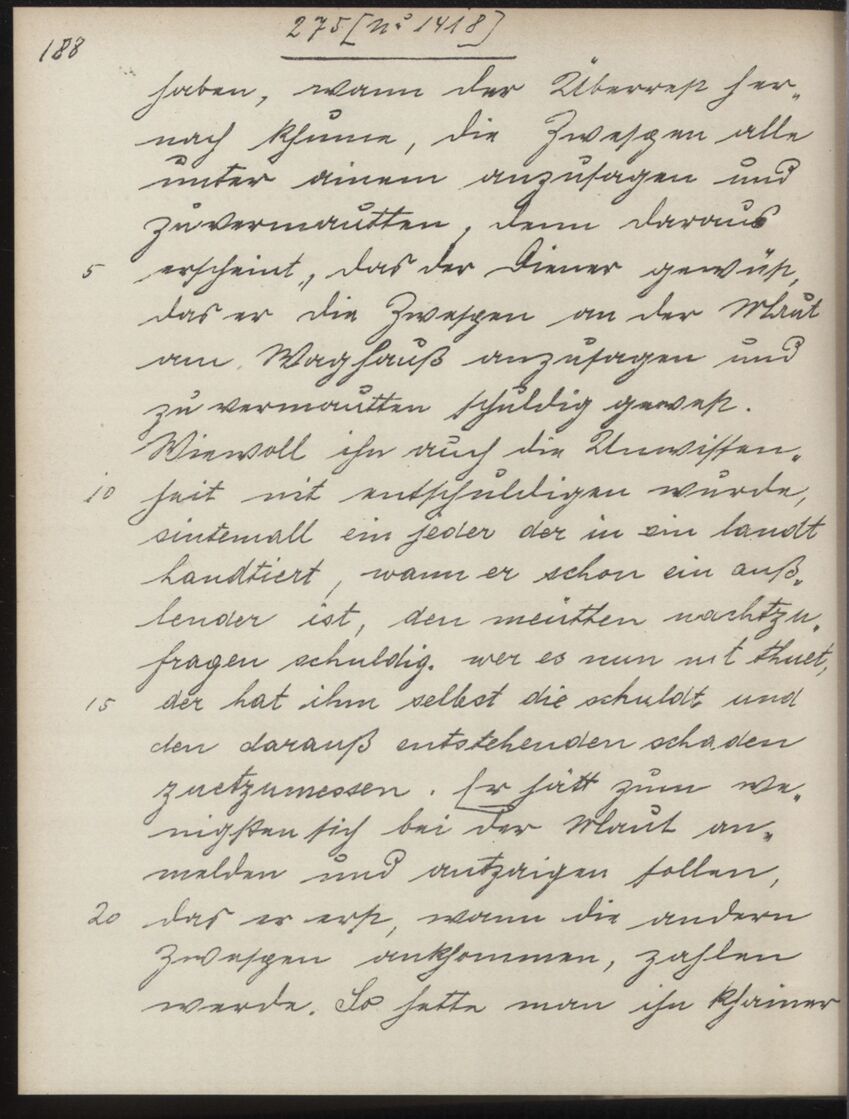 188
275 [No 1418]
haben, wann der Überrest her„
nach khume, die Zwespen alle
unter ainem anzusagen und
zuvermautten, denn daraus
5 erscheint, das der Diener gewüst,
das er die Zwespen an der Maut
am Waghauß anzusagen und
zu vermautten schuldig gewest.
Wiewoll ihn auch die Unwissen„
10 heit nit entschuldigen wurde,
sintemall ein jeder der in ein landt
handtiert, wann er schon ein auß„
lender ist, den meütten nachtzu„
fragen schuldig. wer es nun nit thuet,
15 der hat ihm selbst die schuldt und
den darauß entstehenden schaden
zuetzumessen. Er hätt zum we„
nigsten sich bei der Maut an„
melden und antzaigen sollen,
20 das er erst, wann die andern
Zwespen ankhommen, zahlen
werde. So hette man ihn khainer